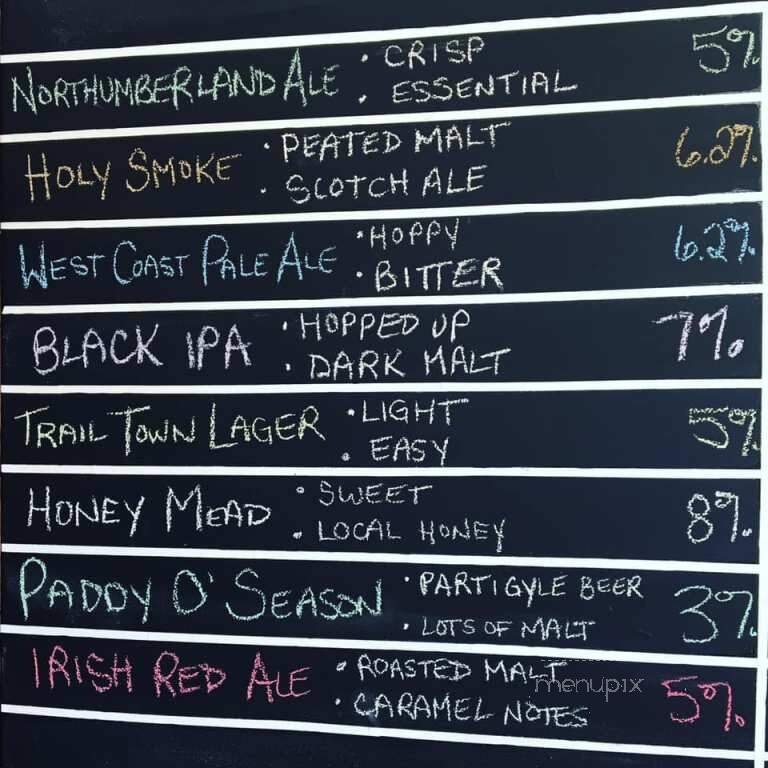 NORTHUMBERLAND ALE • CRISP 5%
• ESSENTIAL
HOLY SMOKE • PEATED MALT 6.2%
• SCOTCH ALE
WEST COAST PALE ALE • HOPPY 6.2%
• BITTER
BLACK IPA • HOPPED UP 7%
• DARK MALT
TRAIL TOWN LAGER • LIGHT 5%
• EASY
HONEY MEAD • SWEET 8%
• LOCAL HONEY
PADDY O'SEASON • PARTIGYLE BEER 3%
• LOTS OF MALT
IRISH RED ALE • ROASTED MALT 5%
• CARAMEL NOTES
menupix